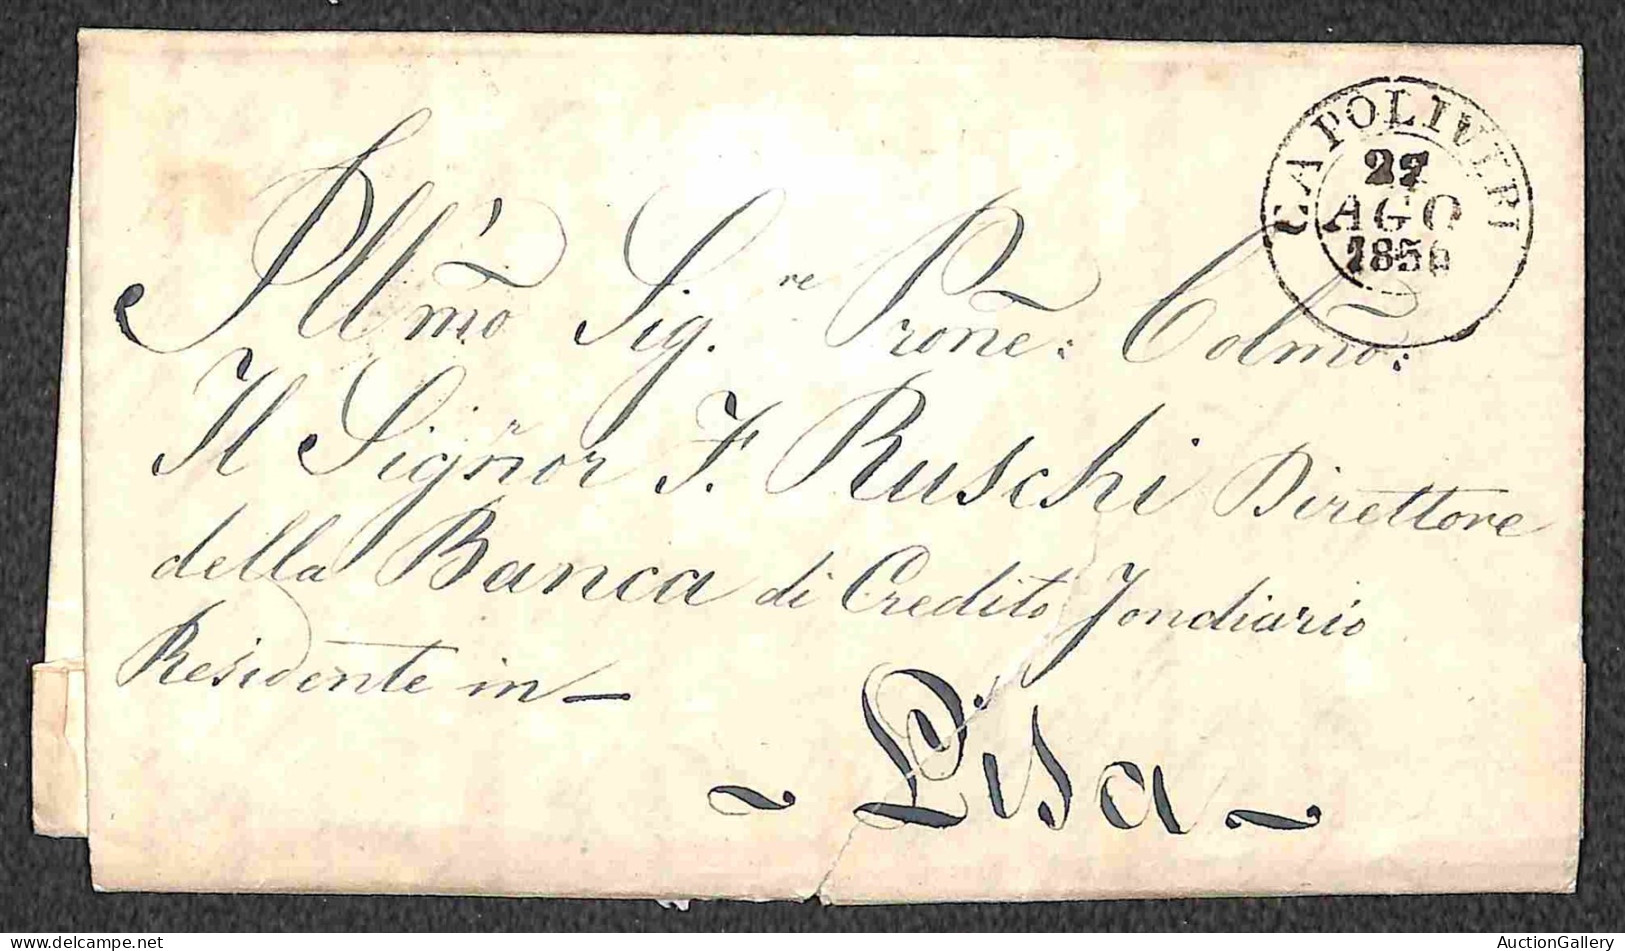 CAPOLIVERI
27
AGO
185
Ill'mo Sig.re Prone: Colmo:
Il Signor F. Ruschi Direttore
della Banca di Credito Fondiario
Residente in —
~ Pisa ~
delcampe.net
AuctionGallery